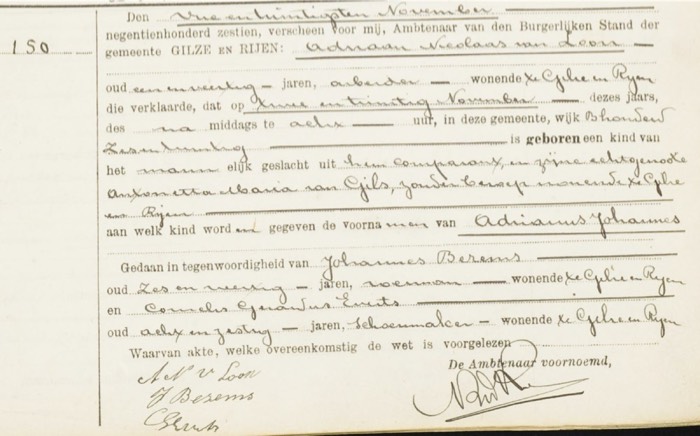 150
Den Vier en twintigsten November
negentienhonderd zestien, verscheen voor mij, Ambtenaar van den Burgerlijken Stand der
gemeente GILZE EN RIJEN: Adriaan Nicolaas van Loon
oud een en veertig jaren, arbeider wonende te Gilze en Rijen
die verklaarde, dat op twee en twintig November dezes jaars,
des na middags te acht uur, in deze gemeente, wijk B honderd
Zesentwintig is geboren een kind van
het mannelijk geslacht uit hem comparant, en zijne echtgenoote
Antonetta Maria van Gils, zonder beroep wonende te Gilze
en Rijen
aan welk kind worden gegeven de voornamen van Adrianus Johannes
Gedaan in tegenwoordigheid van Johannes Bezems
oud Zes en veertig jaren, voerman wonende te Gilze en Rijen
en Cornelis Gerardus Everts
oud acht en zestig jaren, Schoenmaker wonende te Gilze en Rijen
Waarvan akte, welke overeenkomstig de wet is voorgelezen
De Ambtenaar voornoemd,
A N v Loon
J Bezems